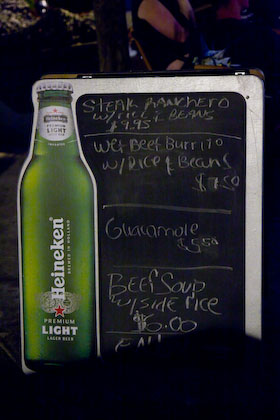 STEAK RANCHERO
W/ RICE & BEANS
$9.95
Wet Beef Burrito
W/ Rice & Beans
$7.50
Guacamole
$5.50
Beef Soup
W/ SIDE rice
$6.00
Heineken
PREMIUM
LIGHT
Heineken
BREWED IN HOLLAND
PREMIUM
LIGHT
LAGER BEER